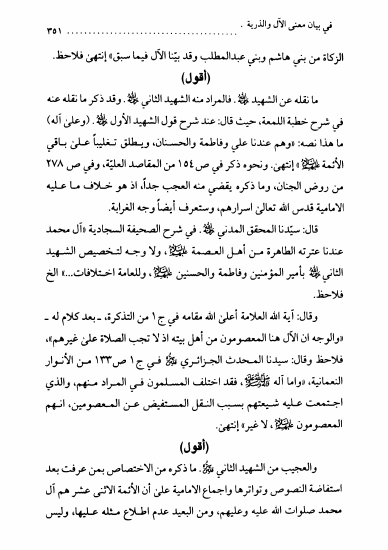 في بيان معنى الآل والذرية . ٣٥١
الزكاة من بني هاشم وبني عبدالمطلب وقد بيّنا الآل فيما سبق» إنتهىٰ فلاحظ.
(أقول)
ما نقله عن الشهيد ﷫. فالمراد منه الشهيد الثاني ﷫. وقد ذكر ما نقله عنه
في شرح خطبة اللمعة، حيث قال: عند شرح قول الشهيد الأول ﷫. (وعلىٰ آله)
ما هذا نصه: «وهم عندنا علي وفاطمة والحسنان، ويطلق تغليباً علىٰ باقي
الأئمة» إنتهىٰ. ونحوه ذكر في ص ١٥٤ من المقاصد العليّة، وفي ص ٢٧٨
من روض الجنان، وما ذكره يقضي منه العجب جداً، اذ هو خلاف ما عليه
الامامية قدس الله تعالىٰ اسرارهم، وستعرف أيضاً وجه الغرابة.
قال: سيّدنا المحقق المدني ﷫. في شرح الصحيفة السجادية «آل محمد
عندنا عترته الطاهرة من أهل العصمة، ولا وجه لتخصيص الشهيد
الثاني ﷫ بأمير المؤمنين وفاطمة والحسنين، وللعامة اختلافات...» الخ
فلاحظ.
وقال: آية الله العلامة أعلىٰ الله مقامه في ج ١ من التذكرة، ـ بعد كلام له ـ
«والوجه ان الآل هنا المعصومون من أهل بيته اذ لا تجب الصلاة علىٰ غيرهم»،
فلاحظ وقال: سيدنا المحدث الجزائري ﷫ في ج ١ ص ١٣٣ من الأنوار
النعمانية، «واما آله، فقد اختلف المسلمون في المراد منهم، والذي
اجتمعت عليه شيعتهم بسبب النقل المستفيض عن المعصومين، انهم
المعصومون، لا غير» إنتهىٰ.
(أقول)
والعجيب من الشهيد الثاني ﷫. ما ذكره من الاختصاص بمن عرفت بعد
استفاضة النصوص وتواترها واجماع الامامية علىٰ أن الأئمة الاثنىٰ عشر هم آل
محمد صلوات الله عليه وعليهم، ومن البعيد عدم اطلاع مثله عليها، وليس